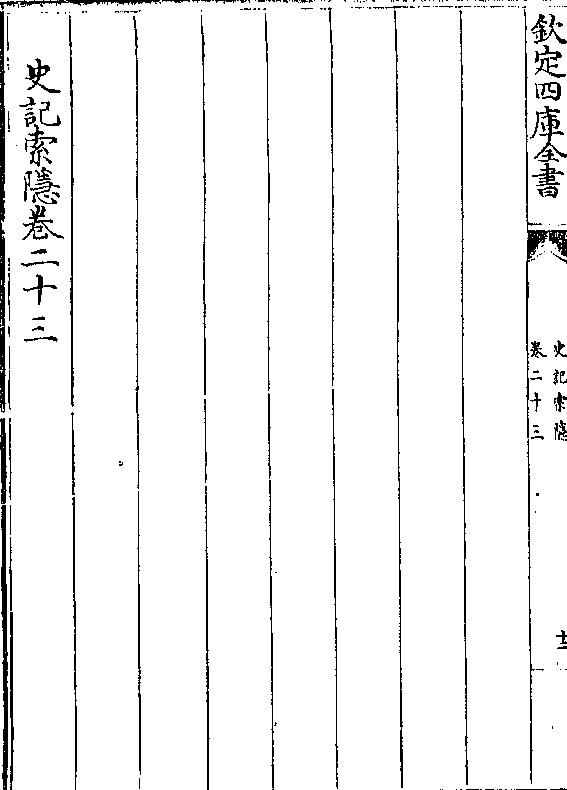 欽定四庫全書
史記索隱
卷二十三
史記索隱卷二十三